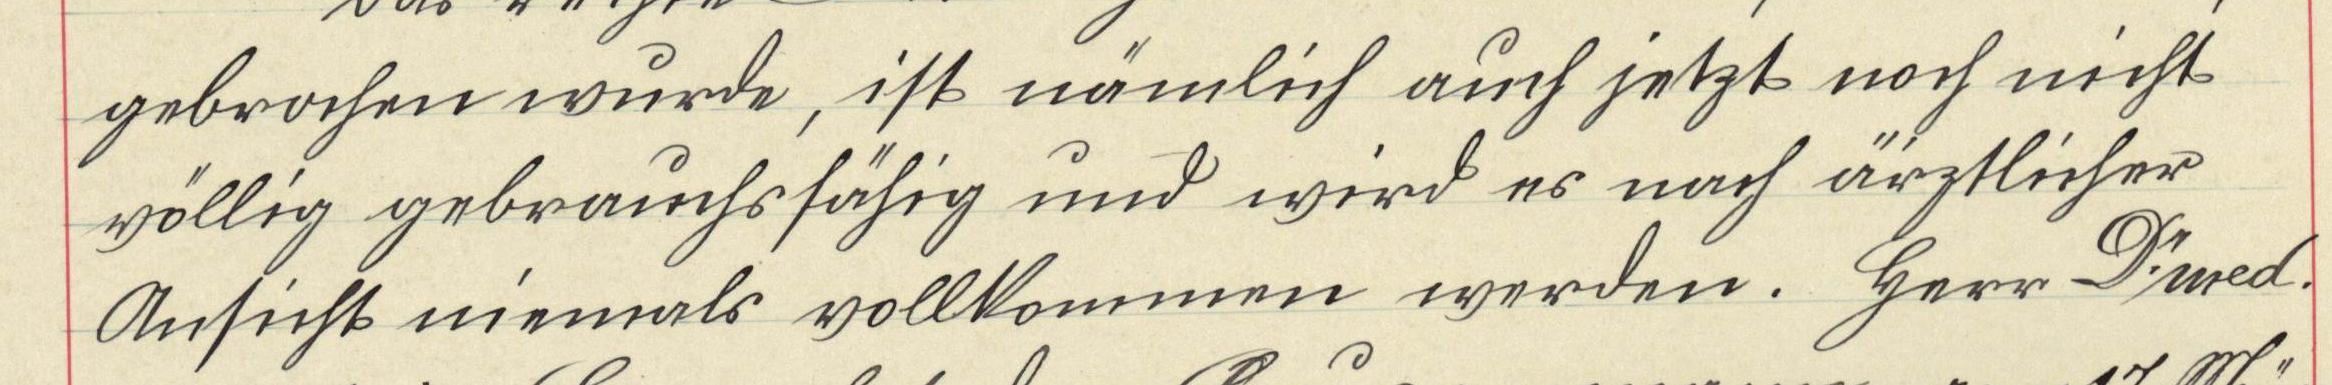 Das rechte
gebrochen wurde, ist nämlich auch jetzt noch nicht
völlig gebrauchsfähig und wird es nach ärztlicher
Ansicht niemals vollkommen werden. Herr Dr. med.